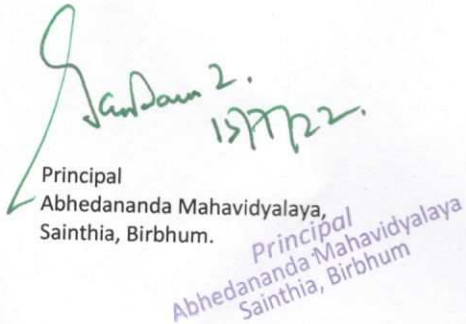 15/7/22.
Principal
Abhedananda Mahavidyalaya,
Sainthia, Birbhum.
Principal
Abhedananda Mahavidyalaya
Sainthia, Birbhum